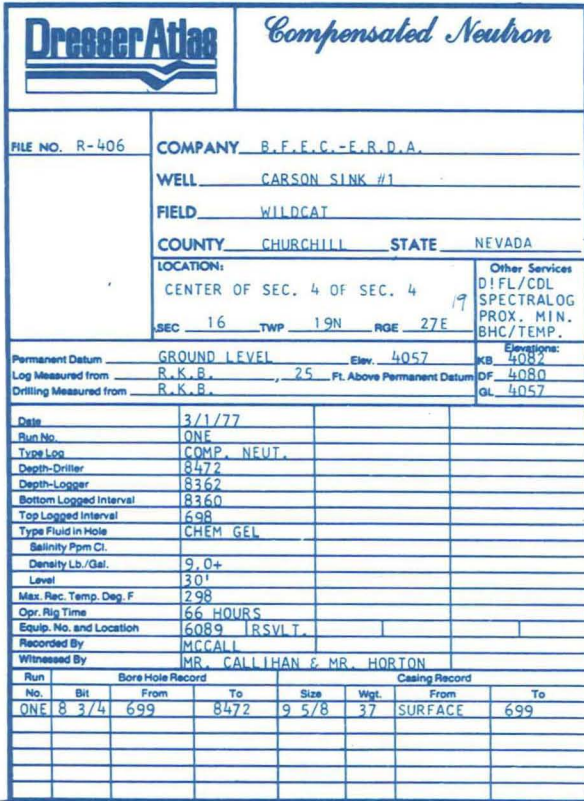 Dresser Atlas
Compensated Neutron
FILE NO. R-406
COMPANY B.F.E.C.-E.R.D.A.
WELL CARSON SINK #1
FIELD WILDCAT
COUNTY CHURCHILL STATE NEVADA
LOCATION:
CENTER OF SEC. 4 OF SEC. 4
19
SEC 16 TWP 19N RGE 27E
Other Services
DIFL/CDL
SPECTRALOG
PROX. MIN.
BHC/TEMP.
Permanent Datum GROUND LEVEL Elev. 4057
Log Measured from R.K.B., 25 Ft. Above Permanent Datum
Drilling Measured from R.K.B.
Elevations:
KB 4082
DF 4080
GL 4057
Date 3/1/77
Run No. ONE
Type Log COMP. NEUT.
Depth-Driller 8472
Depth-Logger 8362
Bottom Logged Interval 8360
Top Logged Interval 698
Type Fluid in Hole CHEM GEL
Salinity Ppm Cl.
Density Lb./Gal. 9.0+
Level 30'
Max. Rec. Temp. Deg. F 298
Opr. Rig Time 66 HOURS
Equip. No. and Location 6089 RSVLT.
Recorded By MCCALL
Witnessed By MR. CALLIHAN & MR. HORTON
Run Bore Hole Record Casing Record
No. Bit From To Size Wgt. From To
ONE 8 3/4 699 8472 9 5/8 37 SURFACE 699